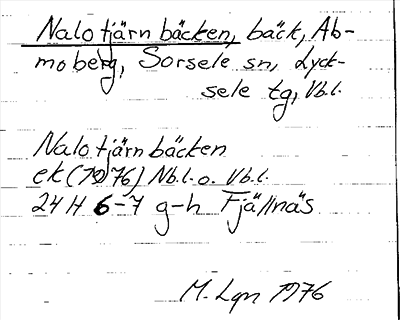 Nalotjärnbäcken, bäck, Ab-
moberg, Sorsele sn, Lyck-
sele tg, Vb.l.
Nalotjärnbäcken
ek (1976) Nb.l. o. Vb.l.
24 H 6-7 g-h Fjällnäs
M. Lgn 1976